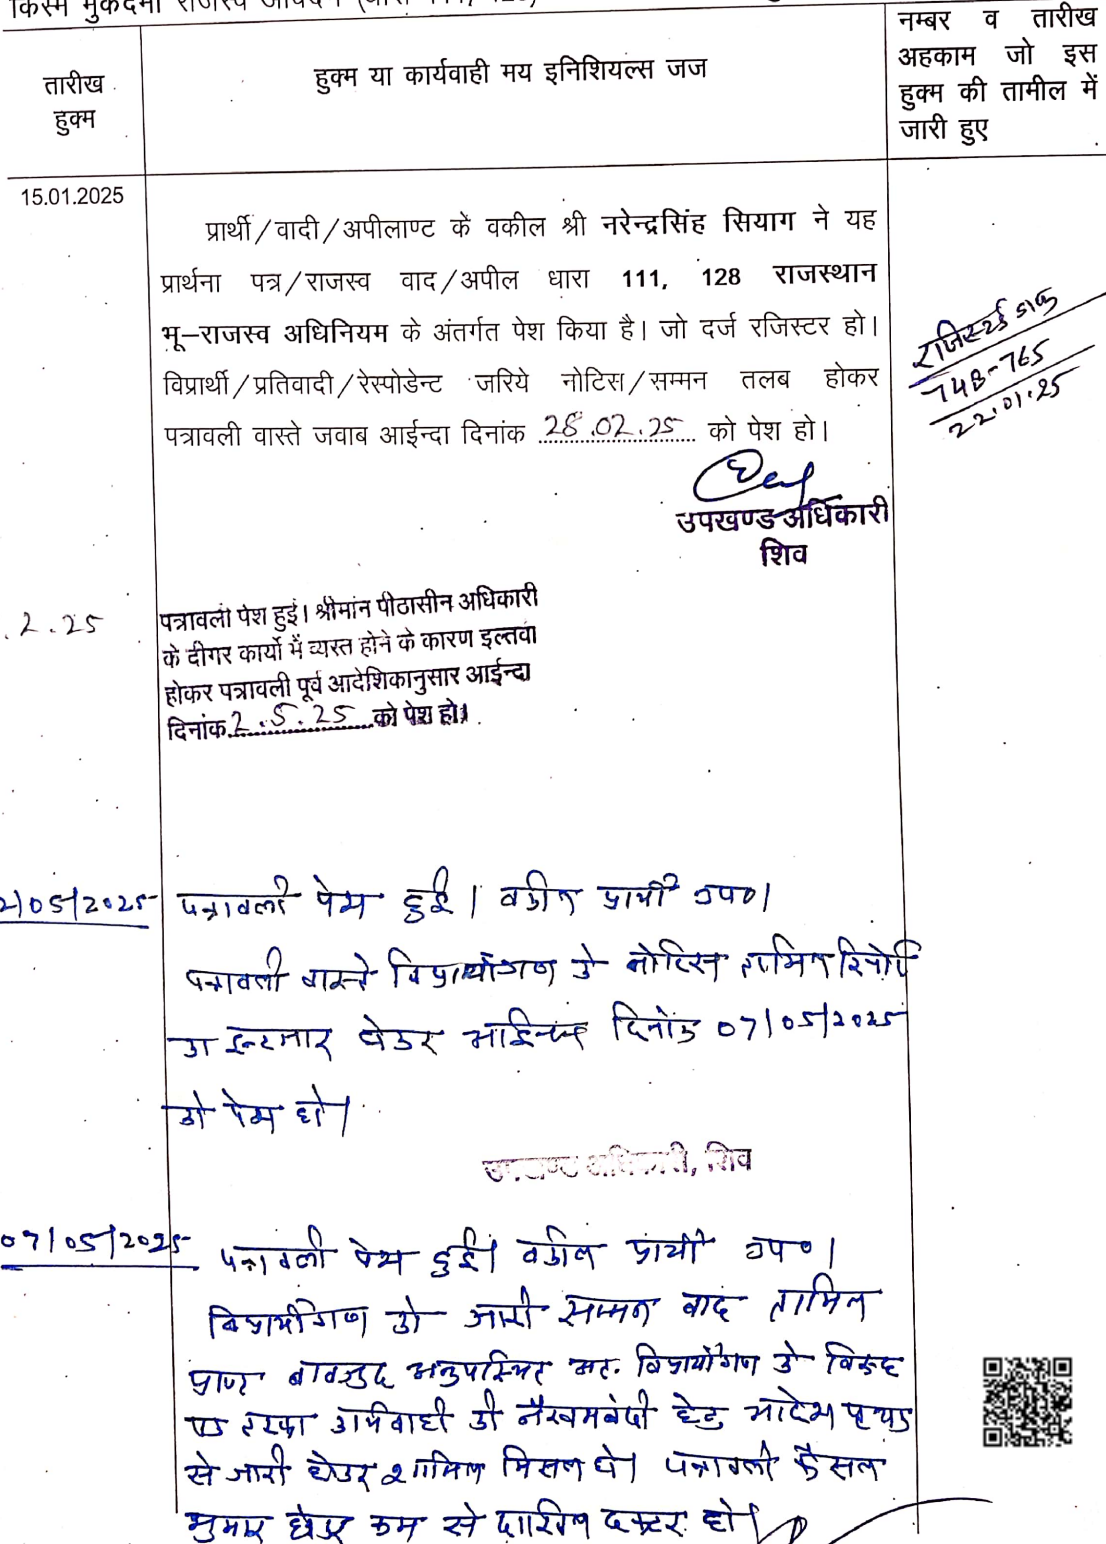 किस्म मुकदमा राजस्व आवेदन
तारीख हुक्म
हुक्म या कार्यवाही मय इनिशियल्स जज
नम्बर व तारीख
अहकाम जो इस
हुक्म की तामील में
जारी हुए
15.01.2025
प्रार्थी/वादी/अपीलाण्ट के वकील श्री नरेन्द्रसिंह सियाग ने यह
प्रार्थना पत्र/राजस्व वाद/अपील धारा 111, 128 राजस्थान
भू-राजस्व अधिनियम के अंतर्गत पेश किया है। जो दर्ज रजिस्टर हो।
विप्रार्थी/प्रतिवादी/रेस्पोडेन्ट जरिये नोटिस/सम्मन तलब होकर
पत्रावली वास्ते जवाब आईन्दा दिनांक 28.02.25 को पेश हो।
रजिस्टर्ड डाक
748-765
22.01.25
उपखण्ड अधिकारी
शिव
.2.25
पत्रावली पेश हुई। श्रीमान पीठासीन अधिकारी
के दीगर कार्यो में व्यस्त होने के कारण इल्तवा
होकर पत्रावली पूर्व आदेशिकानुसार आईन्दा
दिनांक 2.5.25 को पेश हो।
2/05/2025
पत्रावली पेश हुई। वकील प्रार्थी उप०।
पत्रावली वास्ते विप्रार्थीगण के नोटिस तामिल रिपोर्ट
का इन्तजार होकर आईन्दा दिनांक 07/05/2025
को पेश हो।
उपखण्ड अधिकारी, शिव
07/05/2025
पत्रावली पेश हुई। वकील प्रार्थी उप०।
विप्रार्थीगण को जारी सम्मन बाद तामिल
प्राप्त बावजुद अनुपस्थित अत: विप्रार्थीगण के विरुद्ध
एक तरफा कार्यवाही की हेतु आदेश पृथक
से जारी होकर शामिल मिसल हो। पत्रावली फैसल
शुमार होकर कम से दाखिल दफ्तर हो।